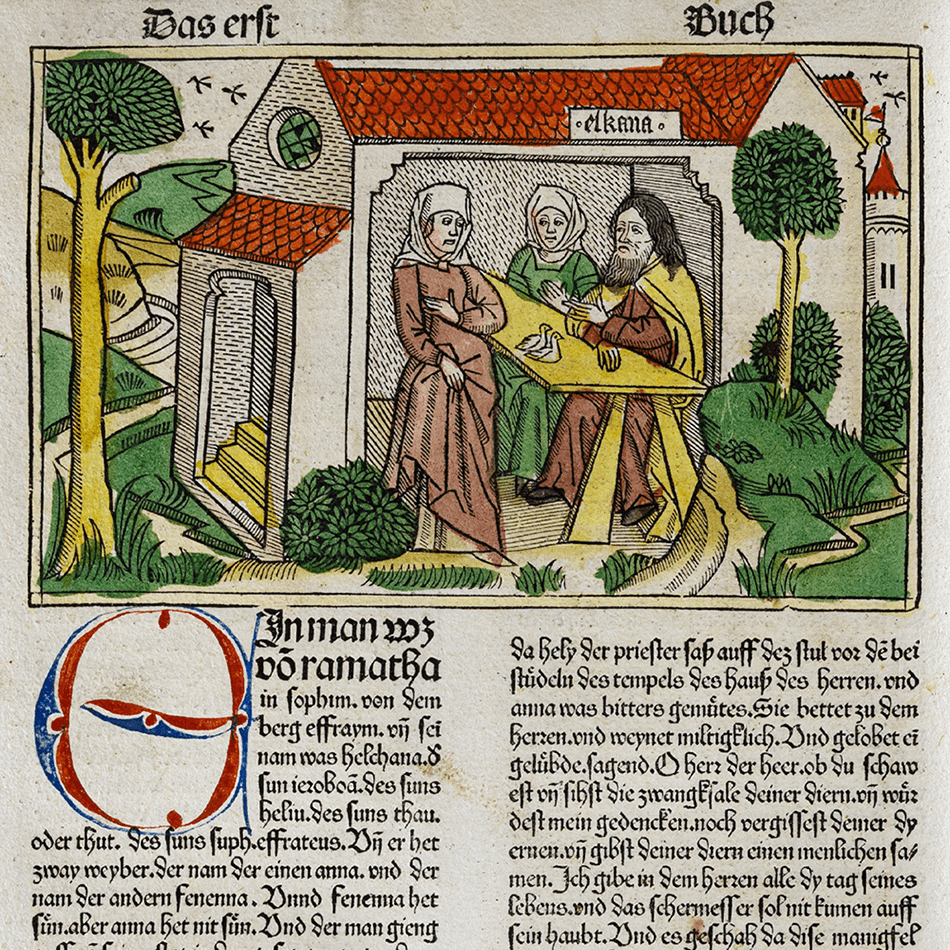 Das erst Buch
elkana
EIn man wz
võ ramatha
in sophim. von dem
berg effraym. vñ sei
nam was helchana. d̕
sun ieroboã. des suns
heliu. des suns thau.
oder thut. des suns suph. effrateus. Vñ er het
zway weyber. der nam der einen anna. vnd der
nam der andern fenenna. Vnnd fenenna het
sün. aber anna het nit sün. Vnd der man gieng
da hely der priester saß auff dez stul vor dē bei
stüdeln des tempels des hauß des herren. vnd
anna was bitters gemütes. Sie bettet zu dem
herren. vnd weynet miltigklich. Vnd gelobet ei
gelübde. sagend. O herr der heer. ob du schaw
est vñ sihst die zwangksale deiner diern. vñ wür
dest mein gedencken. noch vergissest deiner dy
ernen. vñ gibst deiner diern einen menlichen sa⸗
men. Ich gibe in dem herren alle dy tag seines
lebens. vnd das schermesser sol nit kumen auff
sein haubt. Vnd es geschah da dise manigfel